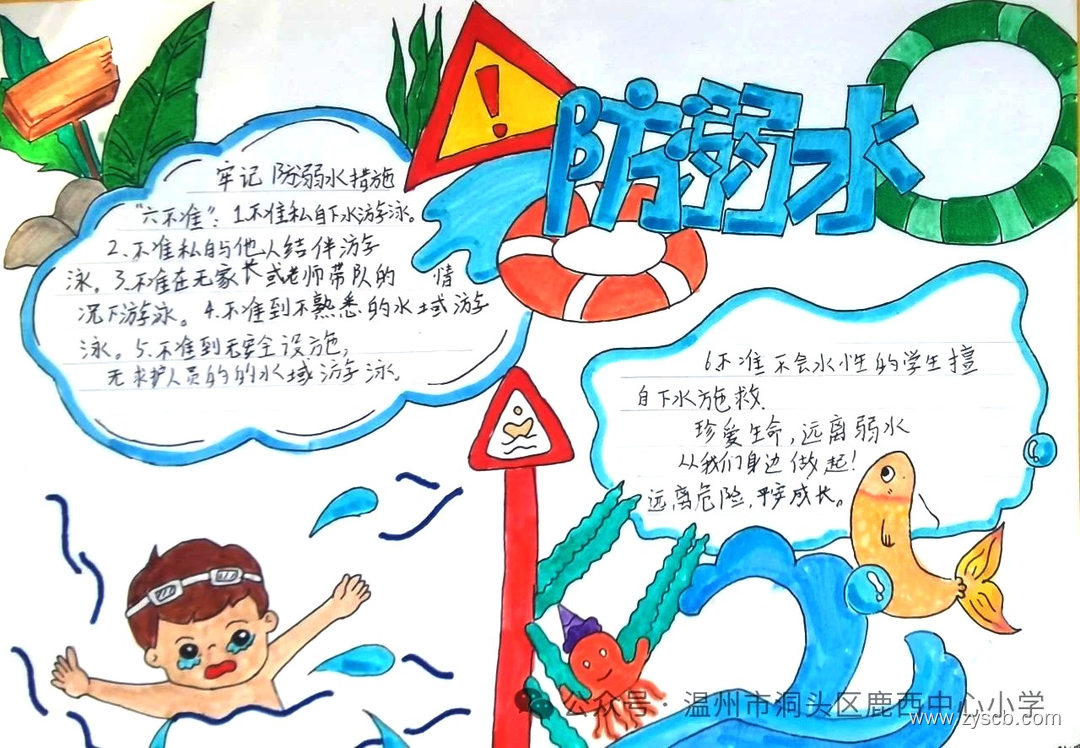 防溺水
牢记防溺水措施
“六不准”：1.不准私自下水游泳。
2.不准私自与他人结伴游
泳。3.不准在无家长或老师带队的 情
况下游泳。4.不准到不熟悉的水域游
泳。5.不准到无安全设施，
无求护人员的的水域游泳。
6.不准不会水性的学生擅
自下水施救.
珍爱生命，远离溺水
从我们身边做起！
远离危险，平安成长。
公众号·温州市洞头区鹿西中心小学
www.zyscb.com